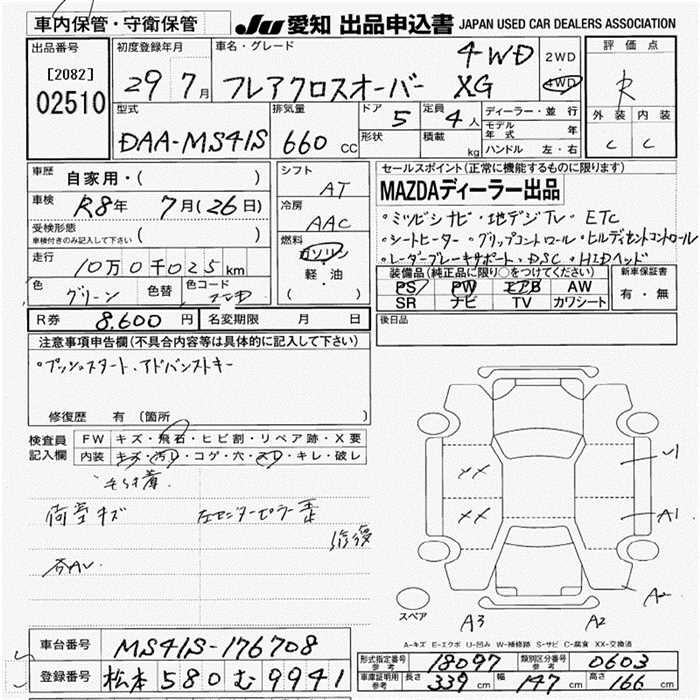 車内保管・守衛保管
JU 愛知 出品申込書 JAPAN USED CAR DEALERS ASSOCIATION
出品番号
[2082]
02510
初度登録年月
29 7月
車名・グレード
4WD
フレアクロスオーバー XG
2WD
・
4WD
評価点
R
外装 内装
C C
型式
DAA-MS41S
排気量
660 CC
ドア 5
形状
定員 4人
積載 kg
ディーラー・並行
モデル年式 年
ハンドル 左・右
車歴
自家用・( )
車検
R8年 7月(26日)
受検形態
車検付きのみ記入して下さい ( )
走行
10万0千025km
色 グリーン
色替
色コード
シフト
AT
冷房
AAC
燃料
ガソリン
・
軽・油
( )
セールスポイント(正常に機能するものに限ります)
MAZDAディーラー出品
・ミツビシナビ・地デジTV・ETC
・シートヒーター・グリップコントロール・ヒルディセントコントロール
・レーダーブレーキサポート・DSC・HIDヘッド
装備品(純正品に限り○をつけてください)
PS PW エアB AW
SR ナビ TV カワシート
新車保証書
有・無
R券 8,600円
名変期限 月 日
後日品
注意事項申告欄(不具合内容等は具体的に記入して下さい)
・プッシュスタート・アドバンストキー
修復歴 有 〔箇所 〕
検査員記入欄
FW キズ・飛石・ヒビ割・リペア跡・X要
内装 キズ・汚リ・コゲ・穴・スリ・キレ・破レ
荷室キズ
左センターピラー歪
修復
XX
XX
U1
A1
A2
A3
A2
スペア
A-キズ E-エクボ U-凹み W-補修跡 S-サビ C-腐食 XX-交換済
車台番号 MS41S-176708
登録番号 松本 580 む 9941
形式指定番号 参考 18097
類別区分番号 参考 0603
車庫証明用 参考 長さ 339 cm 幅 147 cm 高さ 166 cm